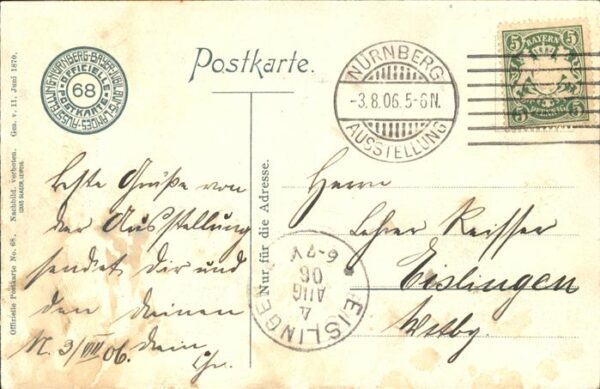 Postkarte.
NÜRNBERG-BAYR. JUBILÄUMS-LANDES-AUSSTELLUNG
OFFICIELLE POSTKARTE
68
NÜRNBERG
-3.8.06.5-6N.
AUSSTELLUNG
5 BAYERN 5
5 PFENNIG 5
Officielle Postkarte No. 68. Nachbild. verboten. Ges. v. 11. Juni 1870.
Nur für die Adresse.
beste Grüße von
der Ausstellung
sendet Dir und
den Deinen
N. 3/VIII 06. Dein
Herrn
Lehrer Reisser
Eislingen
Wttbg.
EISLINGEN
4
AUG
06
6-7V